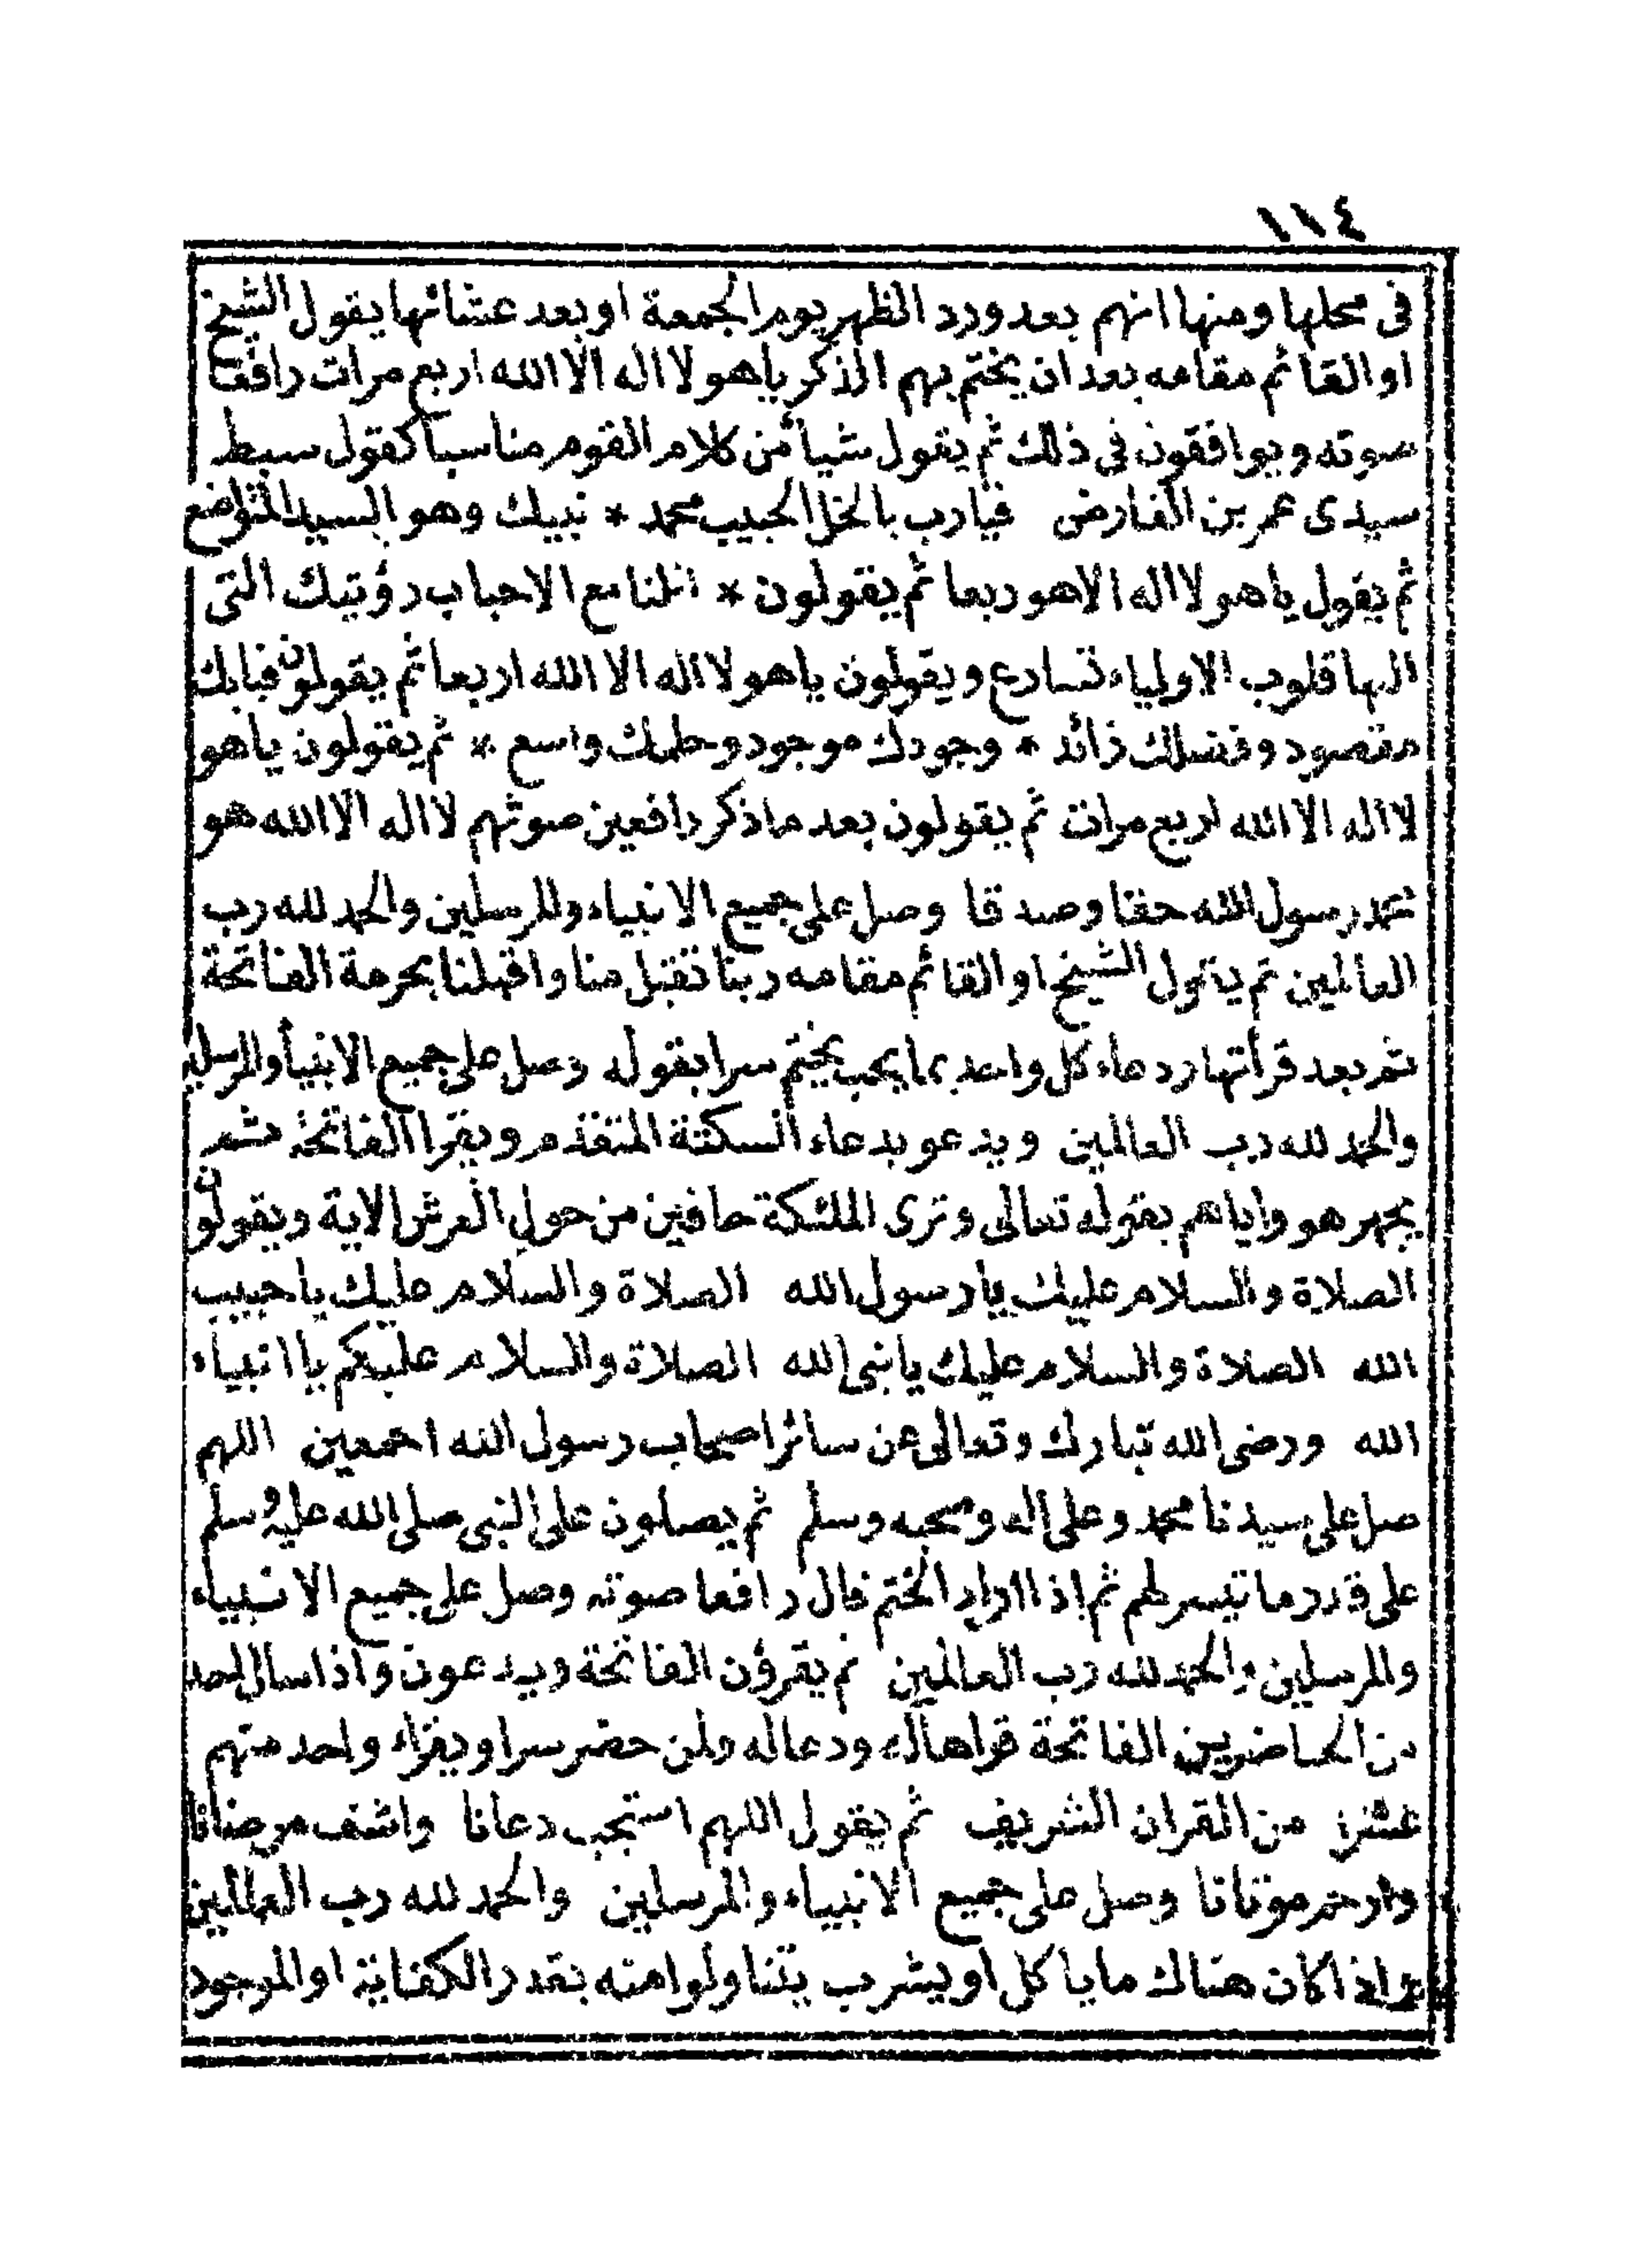 ١١٤
فى محلها ومنها انهم بعد ورد الظهر يوم الجمعة او بعد عشائها يقول الشيخ
او القائم مقامه بعد ان يختم بهم الذكر ياهو لا اله الا الله اربع مرات رافعا
صوته ويوافقون فى ذلك ثم يقول شيأ من كلام القوم مناسبا كقول سبط
سيدى عمر بن الفارض فيارب بالخل الحبيب محمد * نبيك وهو السيد المتواضع
ثم يقول ياهو لا اله الا هو ربعا ثم يقولون * انلنا مع الاحباب رؤيتك التى
اليها قلوب الاولياء تسارع ويقولون ياهو لا اله الا الله اربعا ثم يقولون فبابك
مقصود وفضلك زائد * وجودك موجود وحلمك واسع * ثم يقولون ياهو
لا اله الا الله اربع مرات ثم يقولون بعد ما ذكر رافعين صوتهم لا اله الا الله هو
محمد رسول الله حقا وصدقا وصل على جميع الانبياء والمرسلين والحمد لله رب
العالمين ثم يقول الشيخ او القائم مقامه ربنا تقبل منا واقبلنا بحرمة الفاتحة
ثم بعد قرأتها ودعاء كل واحد بما يحب يختم سرا بقوله وصل على جميع الانبيأ والمرسلين
والحمد لله رب العالمين ويدعو بدعاء السكتة المتقدم ويقرا الفاتحة ثم
يجهر هو واياهم بقوله تعالى وترى الملئكة حافين من حول العرش الاية ويقولون
الصلاة والسلام عليك يا رسول الله الصلاة والسلام عليك يا حبيب
الله الصلاة والسلام عليك يا نبى الله الصلاة والسلام عليكم يا انبياء
الله ورضى الله تبارك وتعالى عن سائر اصحاب رسول الله اجمعين اللهم
صل على سيدنا محمد وعلى اله وصحبه وسلم ثم يصلون على النبى صلى الله عليه وسلم
على قدر ما تيسر لهم ثم اذا اراد الختم قال رافعا صوته وصل على جميع الانبياء
والمرسلين والحمد لله رب العالمين ثم يقرؤن الفاتحة ويدعون واذا سال احد
من الحاضرين الفاتحة قراها له ودعا له ولمن حضر سرا ويقراء واحد منهم
عشرا من القران الشريف ثم يقول اللهم استجب دعانا واشف مرضانا
وارحم موتانا وصل على جميع الانبياء والمرسلين والحمد لله رب العالمين
واذا كان هناك ما ياكل او يشرب يتناولوا منه بقدر الكفاية او الموجود